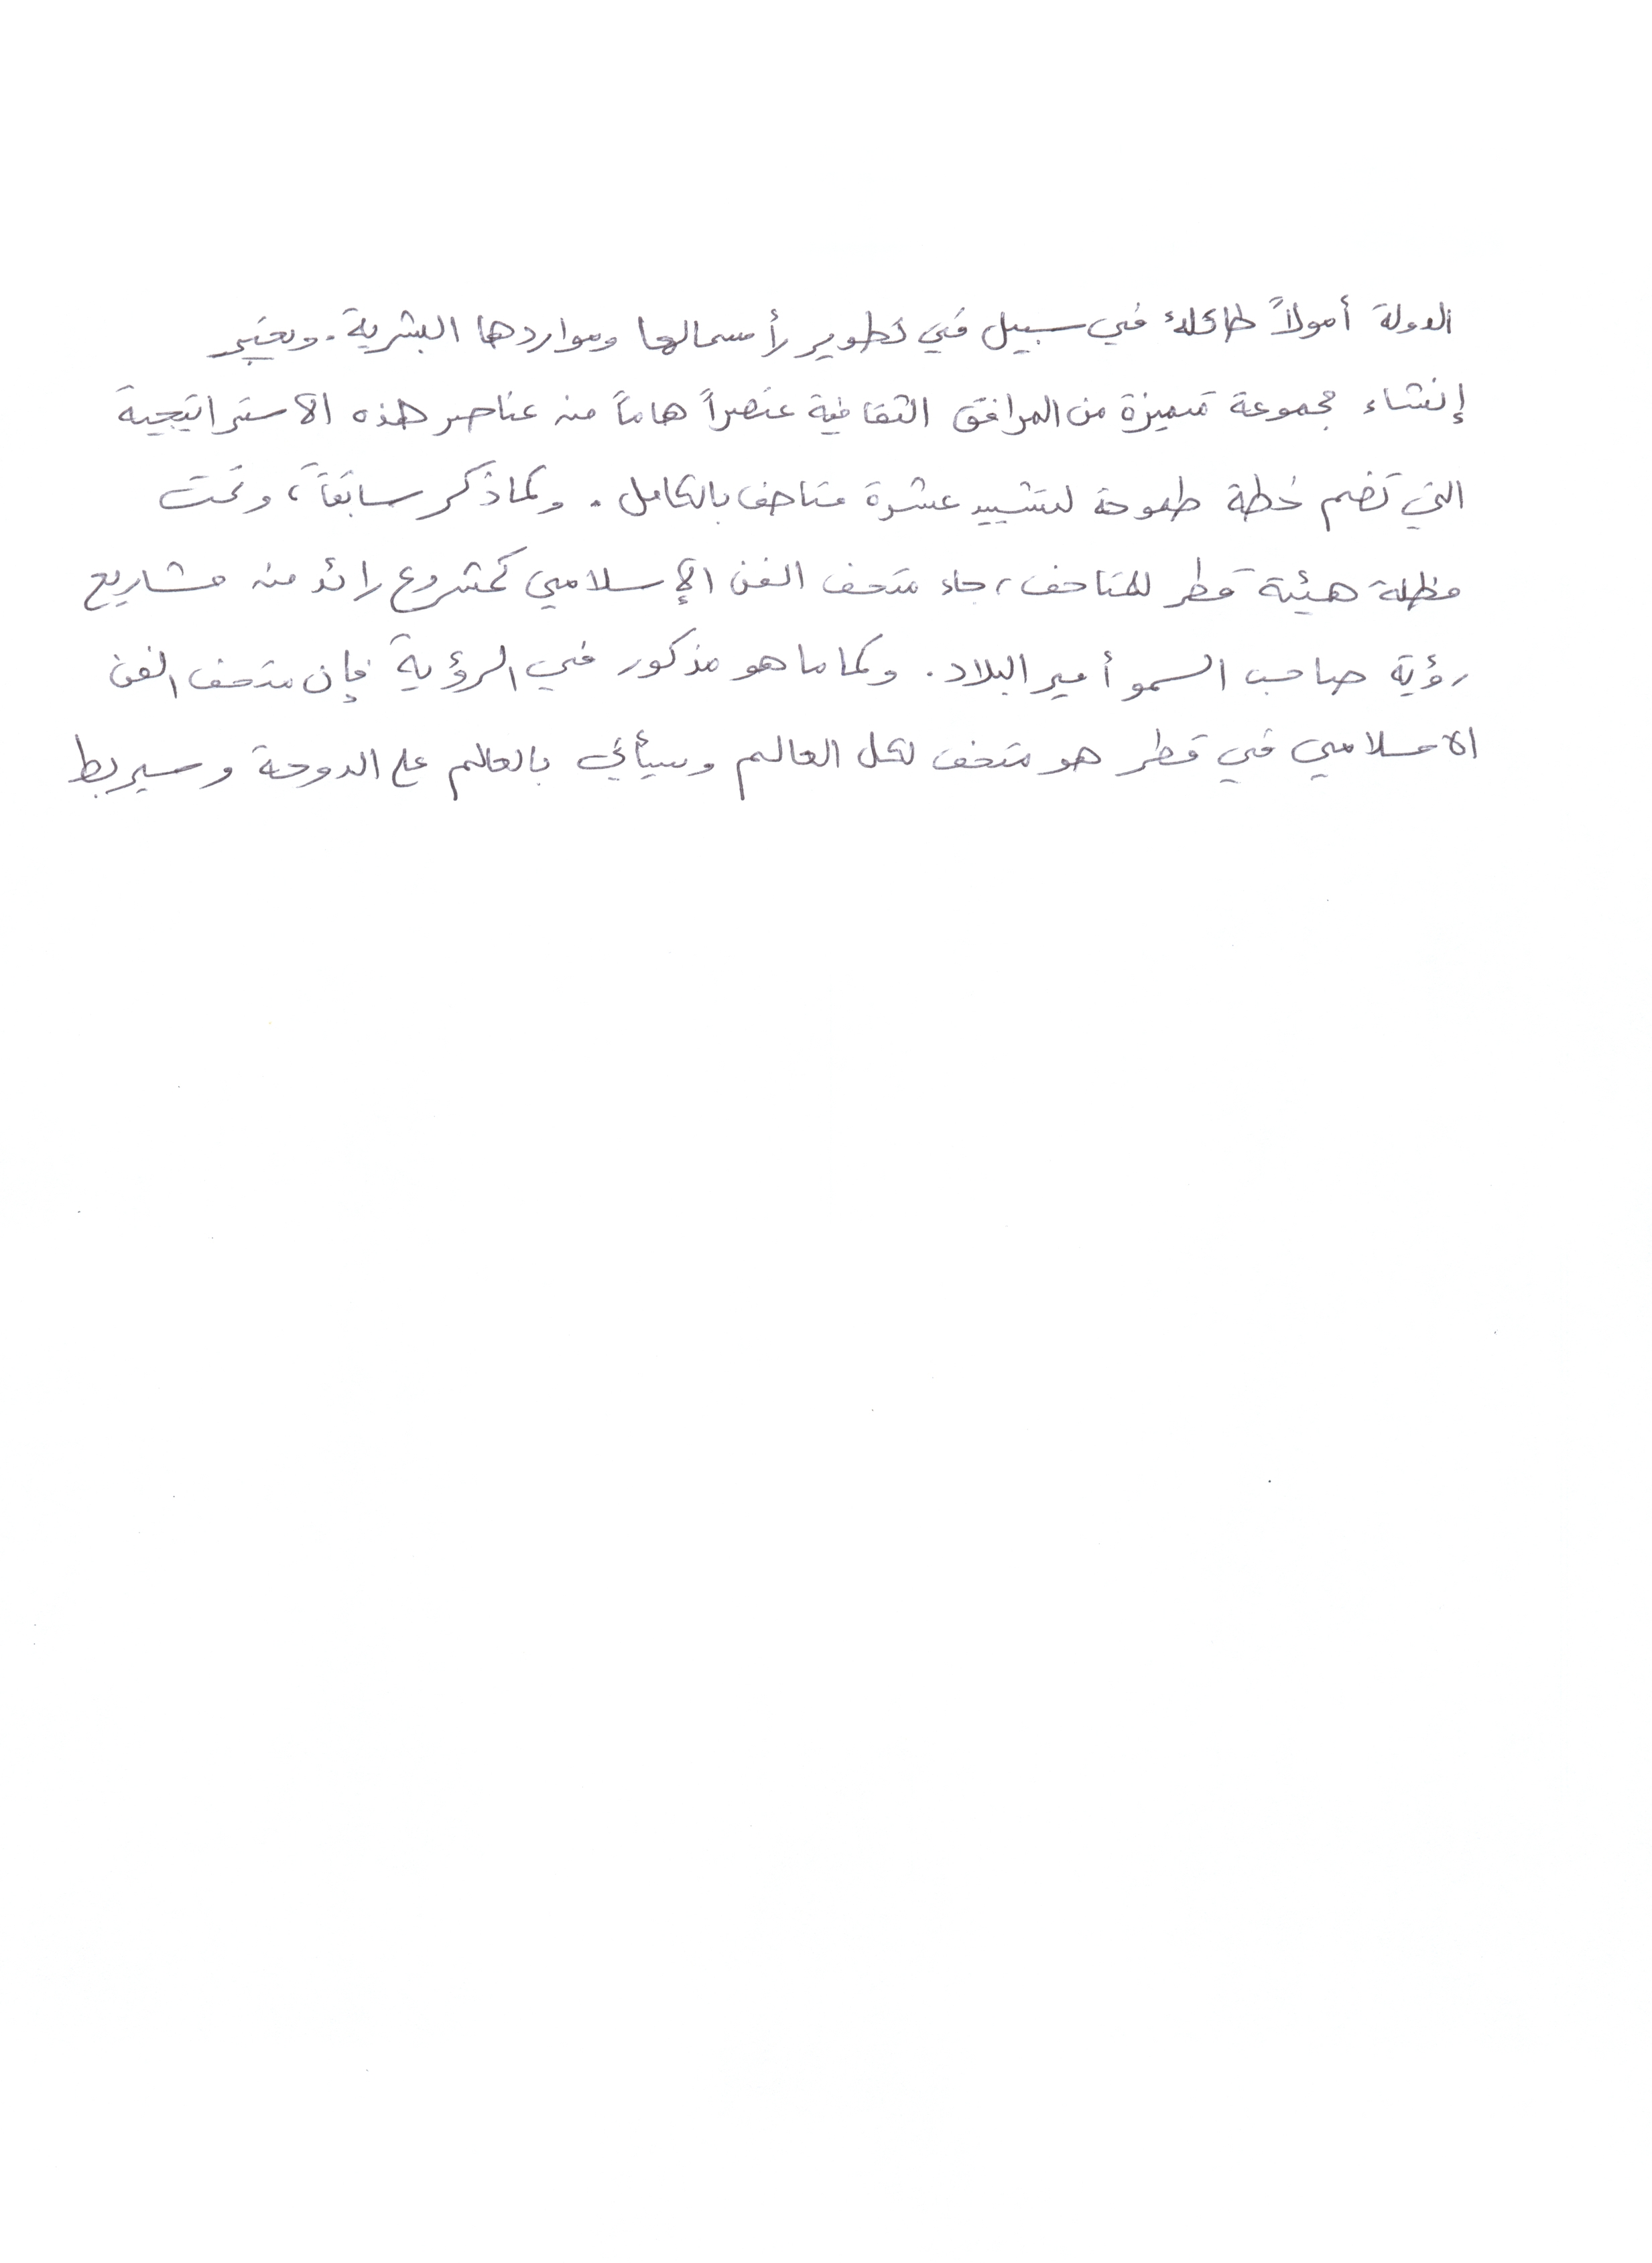 الدولة أمولاً طائلة في سبيل في تطوير رأسمالها ومواردها البشرية. ويعتبر
إنشاء مجموعة متميزة من المرافق الثقافية عنصراً هاماً من عناصر هذه الاستراتيجية
التي تضم خطة طموحة لتشييد عشرة متاحف بالكامل. وكما ذكر سابقاً، وتحت
مظلة هيئة قطر للمتاحف، جاء متحف الفن الإسلامي كمشروع رائد من مشاريع
رؤية صاحب السمو أمير البلاد. وكما ما هو مذكور في الرؤية فإن متحف الفن
الاسلامي في قطر هو متحف لكل العالم وسيأتي بالعالم على الدوحة وسيربط